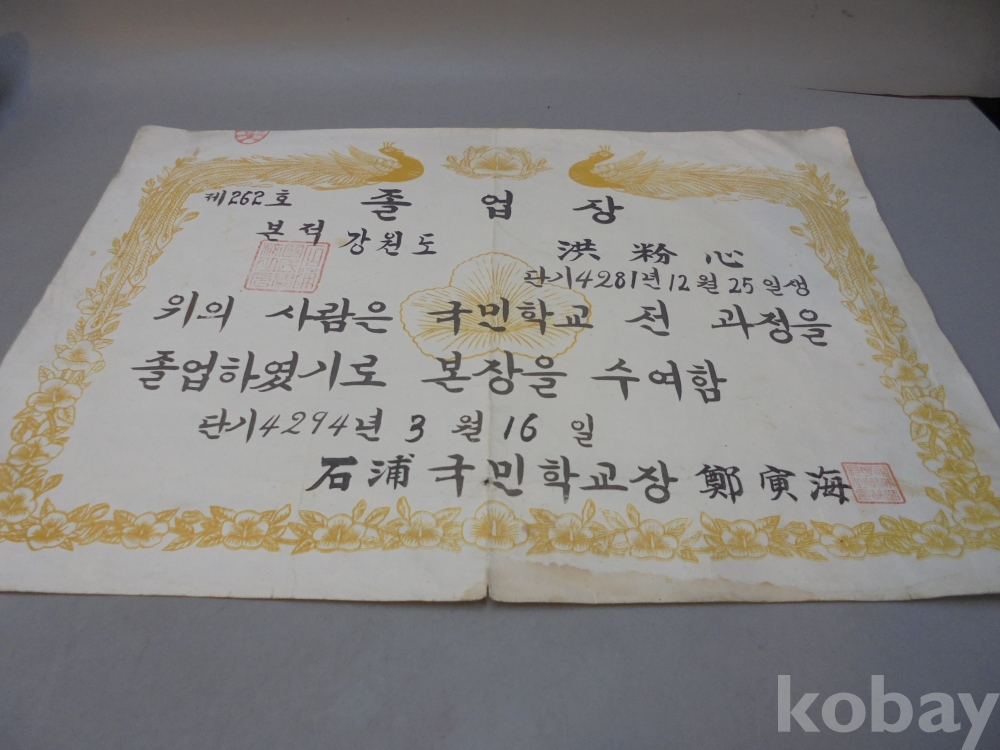 제262호
졸업장
본적 강원도
洪粉心
단기4281년 12월 25일생
위의 사람은 국민학교 전 과정을
졸업하였기로 본장을 수여함
단기4294년 3월 16일
石浦국민학교장 鄭寅海
kobay